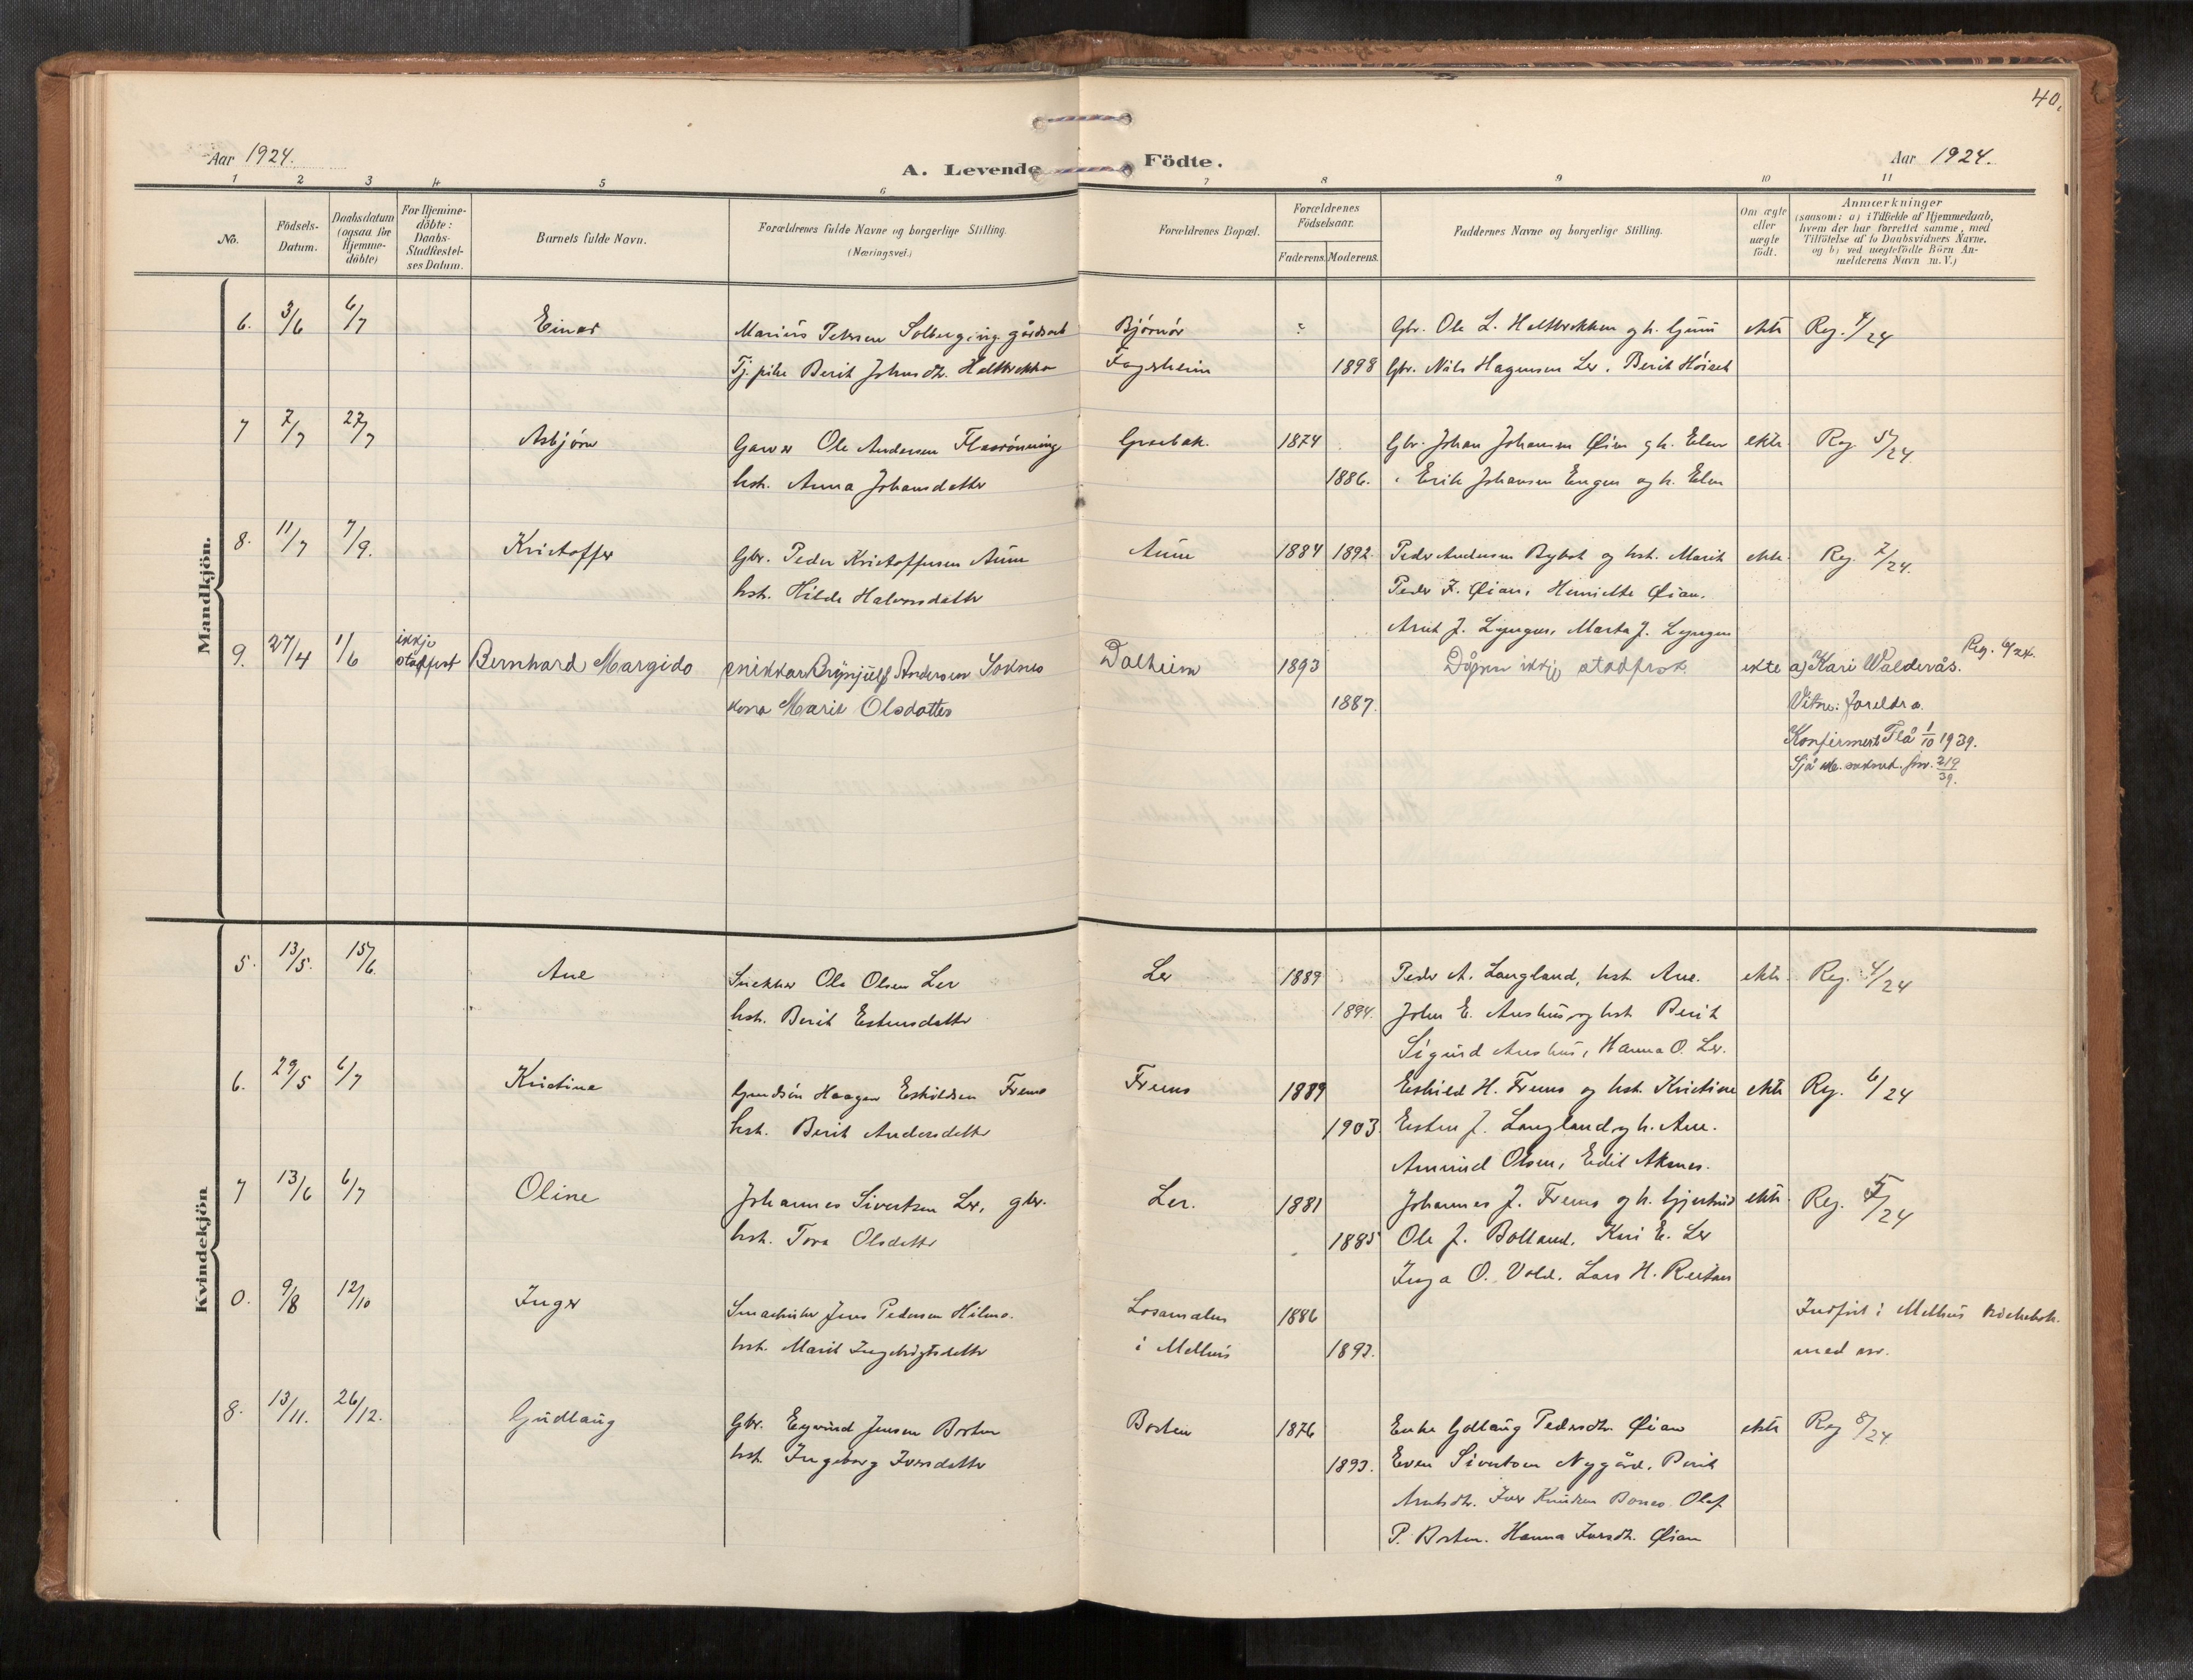 40.
Aar 1924.
A. Levende Födte.
Aar 1924.
1 2 3 4 5 6 7 8 9 10 11
No.
Födsels-Datum.
Daabsdatum (ogsaa for Hjemme-döbte)
For Hjemme-döbte: Daabs-Stadfæstel-ses Datum.
Barnets fulde Navn.
Forældrenes fulde Navne og borgerlige Stilling.
(Næringsvei.)
Forældrenes Bopæl.
Forældrenes Födselsaar.
Faderens. Moderens.
Faddernes Navne og borgerlige Stilling.
Om ægte eller uægte født.
Anmærkninger
(saasom: a) i Tilfælde af Hjemmedaab,
hvem der har forrettet samme, med
Tilföielse af to Daabsvidners Navne,
og b) ved uægtefödte Börn An-
melderens Navn m. V.)
Mandkjön.
6. 3/6 6/7 Einar Marius Petersen Solberg, gårdsarb Bjórnór ? Gbr. Ole L. Heltbrekken og h. Guru ekte Reg. 4/24
Tj. pike Berit Johnsdtr. Heltbrekka Fagerheim 1898 Gbr. Nils Hagensen Ler. Berit Höiset
7 7/7 27/7 Asbjórn Garver Ole Andersen Flaarónning Graabak. 1874 Gbr. Johan Johansen Øien og h. Elen ekte. Reg 5/24.
hst. Anna Johansdatter 1886. " Erik Johansen Engen og h. Elen
8. 11/7 7/9. Kristoffer Gbr. Peder Kristoffersen Aune Aune 1884 1892. Peder Andersen Bybrot og hst. Marit ekte. Reg. 7/24.
hst. Hilde Halvorsdatter Peder F. Øian, Henriette Øian.
Arnt J. Lyngen, Marta J. Lyngen
9. 27/4 1/6 ikkje stadfest Bernhard Margido snikkar Brynjulf Andersen Soknes Dalheim 1893 Dåpen ikkje stadfest. ekte a) Kari Walderås. Reg. 6/24.
kona Marit Olsdatter 1887. Vitne: foreldra.
Konfirmert Flå 1/10 1939.
Sjå 219/39.
Kvindekjön
5. 13/5. 15/6. Ane Snekker Ole Olsen Ler Ler 1889 Peder A. Langland, hst. Ane. ekte. Reg. 4/24
hst. Berit Estensdatter 1894. John E. Aushus og hst Berit
Sigurd Aushus, Hanna O. Ler.
6. 29/5 6/7 Kristine Haagen Eskildsen Frems Frems 1889 Eskild H. Frems og hst. Kristine ekte Reg. 6/24
hst. Berit Andersdatter 1903. Esten J. Langland og h. Ane.
Amund Olsen, Edit Aknes.
7 13/6 6/7 Oline Johannes Sivertsen Ler, gbr. Ler. 1881 Johannes J. Frems og h. Gjertrud ekte. Reg. 5/24
hst. Tora Olsdatter 1885 Ole J. Bolland. Kari E. Ler
Inga O. Vold. Lars H. Reitan
0. 9/8 12/10 Inger Jens Pedersen Hilmo. Losamelen 1886 Indfört i Melhus kirkebok
hst. Marit Ingebrigtsdatter i Melhus 1893. med nr.
8. 13/11. 26/12. Gudlaug Gbr. Eyvind Jensen Borten Borten 1876 Enke Gollaug Pedersdtr. Øian ekte Reg 8/24.
hst. Ingeborg Iversdatter 1893. Even Sivertsen Nygård. Berit
Arntsdtr. Iver Knudsen Bones. Olaf
P. Borten. Hanna Iversdtr. Øian